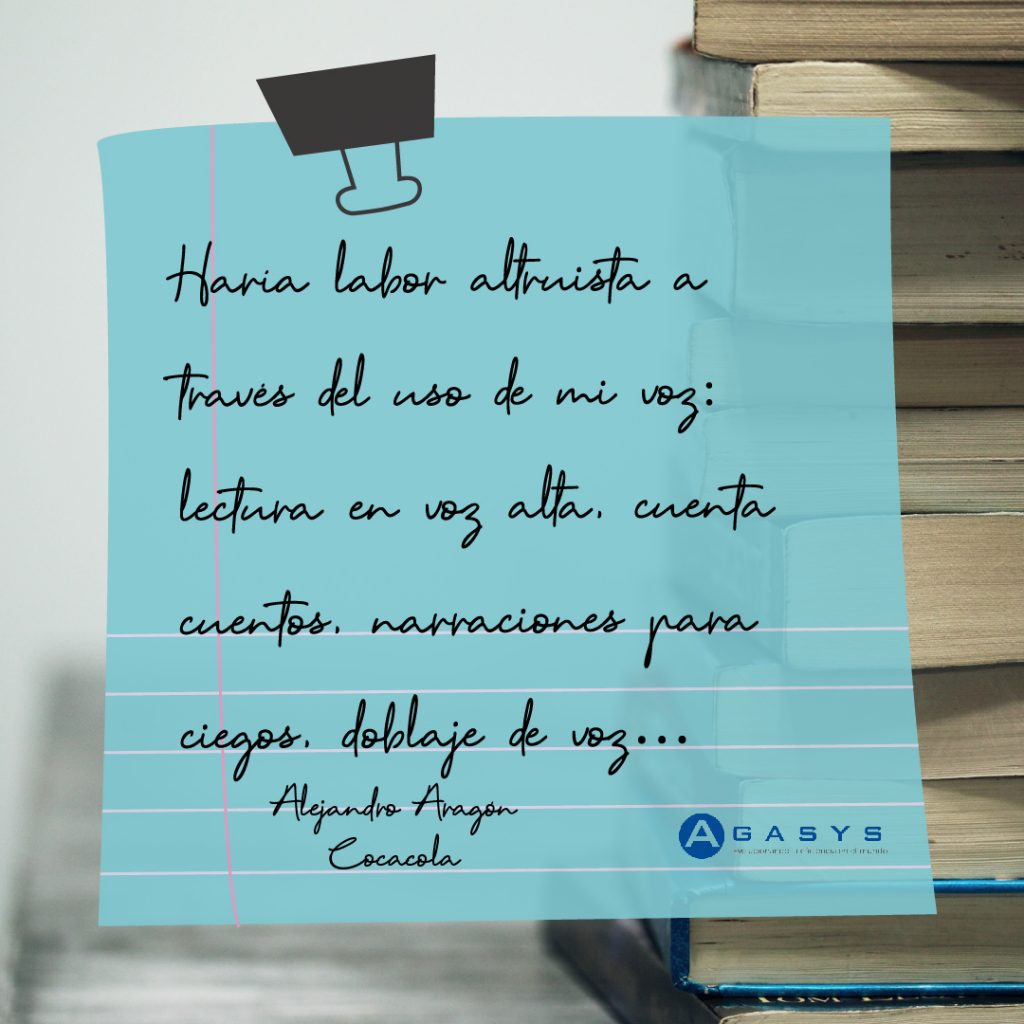 Haría labor altruista a
través del uso de mi voz:
lectura en voz alta, cuenta
cuentos, narraciones para
ciegos, doblaje de voz...
Alejandro Aragón
Cocacola
AGASYS
en el mundo